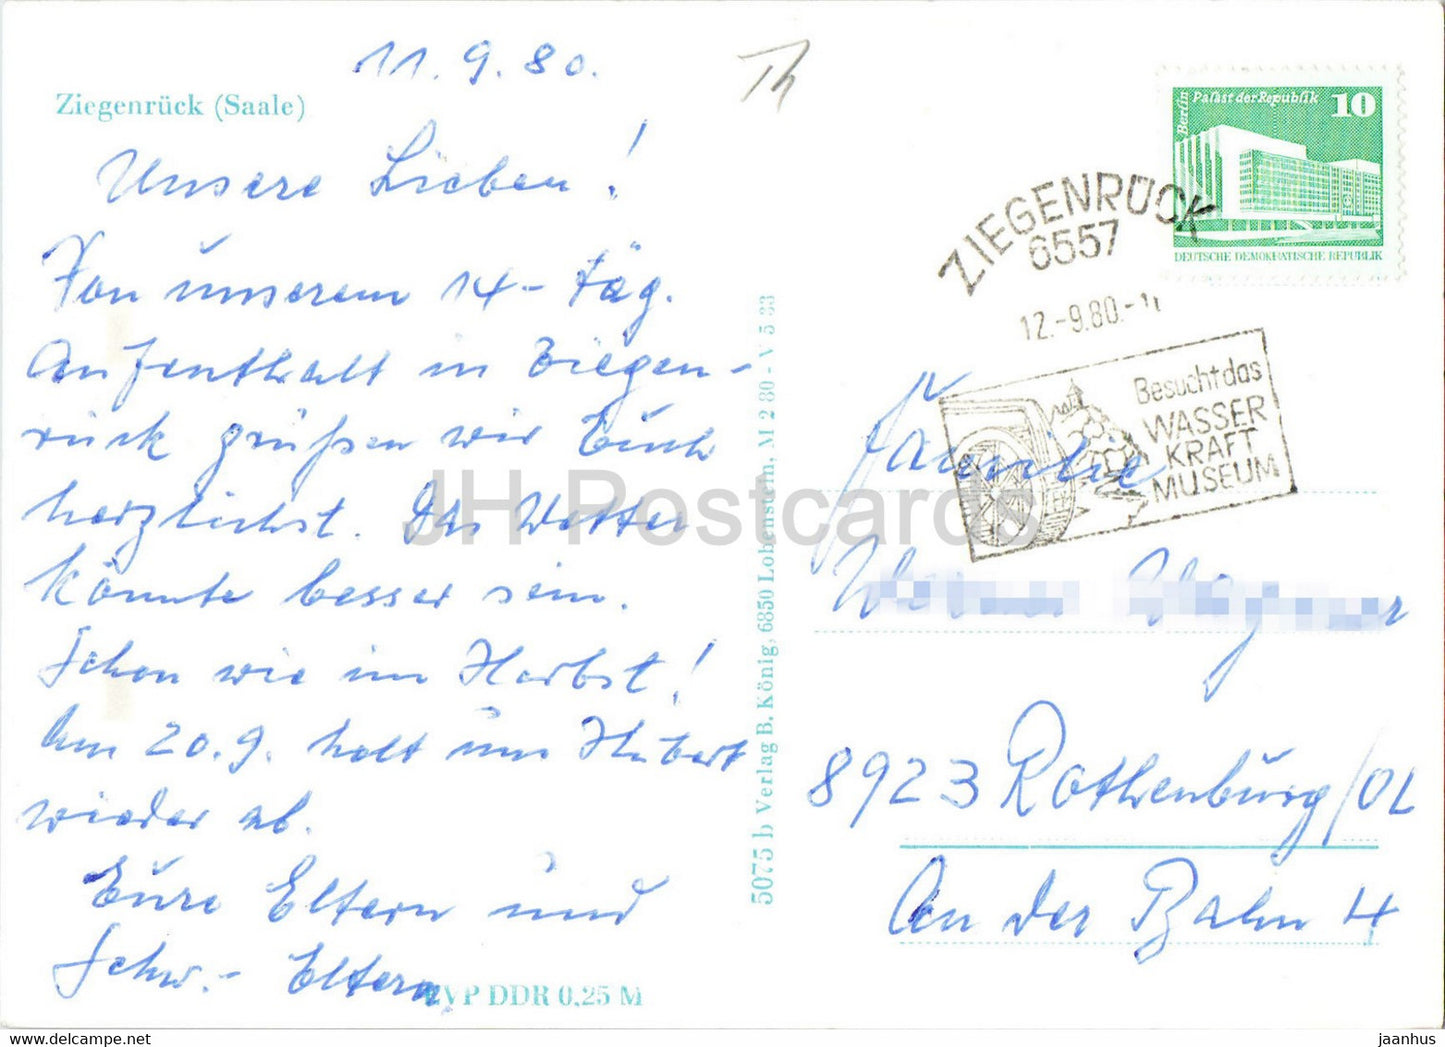 11.9.80.
Th
Ziegenrück (Saale)
Unsere Lieben!
Von unserem 14-täg.
Aufenthalt in Ziegen-
rück grüßen wir Euch
herzlichst. Das Wetter
könnte besser sein.
Schon wie im Herbst!
Am 20.9. holt uns Hubert
wieder ab.
Eure Eltern und
Schw.- Eltern
EVP DDR 0,25 M
5075 b Verlag B. König, 6850 Lobenstein, M 2 80 - V 5 33
Berlin Palast der Republik 10
DEUTSCHE DEMOKRATISCHE REPUBLIK
ZIEGENRÜCK
6557
12.-9.80.-
Besucht das
WASSER
KRAFT
MUSEUM
Familie
8923 Rothenburg/OL
An der Bahn 4
JH Postcards
jaanhus